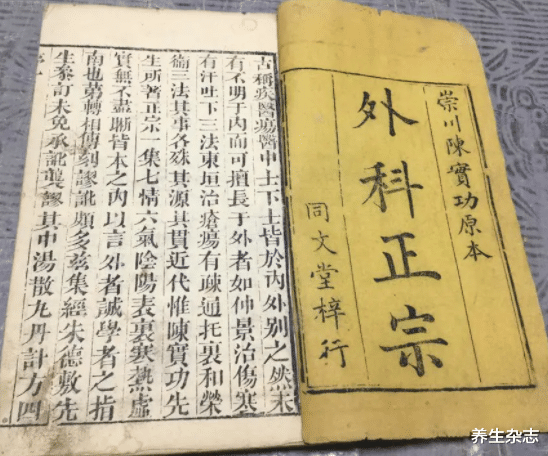 崇川陳實功原本
外科正宗
同文堂梓行
古稱疾醫瘍醫中士下士皆於內外別之然未
有不明于內而可擅長于外者如仲景治傷寒
有汗吐下三法東垣治瘡瘍有疎通托裏和榮
衞三法其事各殊其源其貫近代惟陳實功先
生所著正宗一集七情六氣陰陽表裏寒熱虛
實無不盡晰皆本之內以言外者誠學者之指
南也第轉相傳刻謬訛頗多茲集經朱德敷先
生叅訂未免承訛襲謬其中湯散丸丹計方四
養生杂志